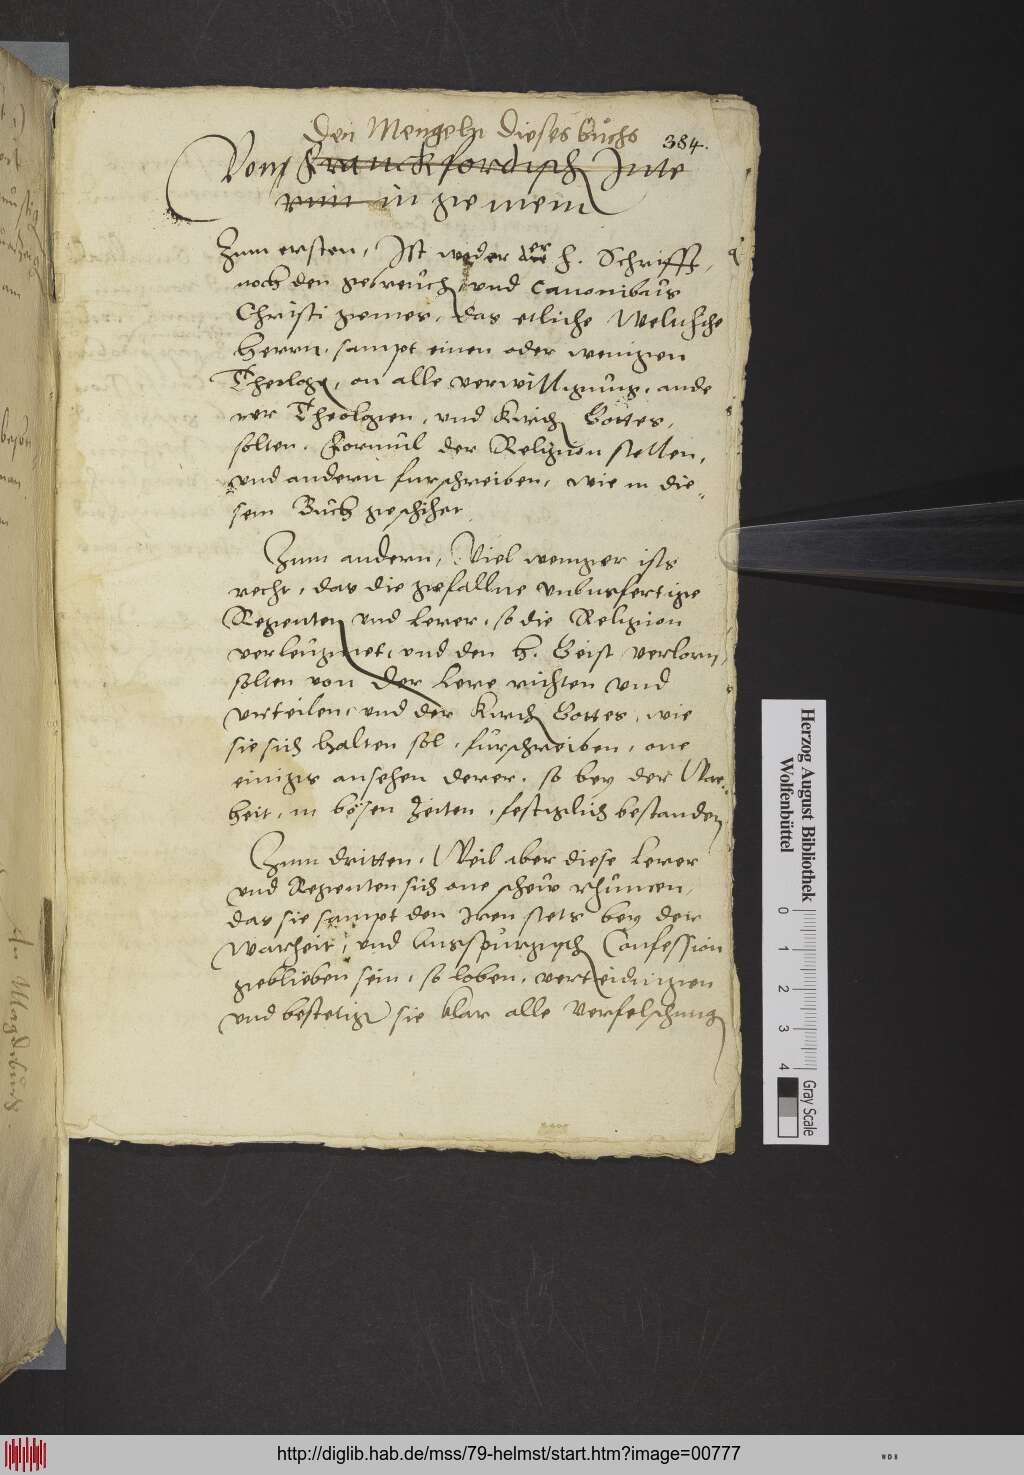 Den Mengeln dieses buchs
384.
Vom Franckfordisch Inte
rim in gemein
Zum ersten, Ist weder der h. Schrifft,
noch den gebreuch und Canonibus
Christi gemes, das etliche Weltliche
herrn, sampt einen oder wenigen
Theologen, on alle verwilligung, ande
rer Theologen, und Kirchen Gottes,
solten, Formul der Religion stellen,
und andern furschreiben, wie in die=
sem Buch geschihet
Zum andern, Viel weniger ists
recht, das die gefallne unbusfertige
Regenten und Lerer, so die Religion
verleugnet, und den h. Geist verlorn,
solten von der Lere richten und
urteilen, und der Kirchen Gottes, wie
sie sich halten sol, furschreiben, one
einiges ansehen derer, so bey der War=
heit, in bösen Zeiten, festiglich bestanden
Zum dritten, Weil aber diese Lerer
und Regenten sich one schew rhümen,
das sie sampt den Iren stets bey der
Warheit, und Ausspurgisch Confession
geblieben sein, so loben, verteidingen
und bestetigen sie klar alle Verfelschung
Herzog August Bibliothek
Wolfenbüttel
0 1 2 3 4
Gray Scale
http://diglib.hab.de/mss/79-helmst/start.htm?image=00777